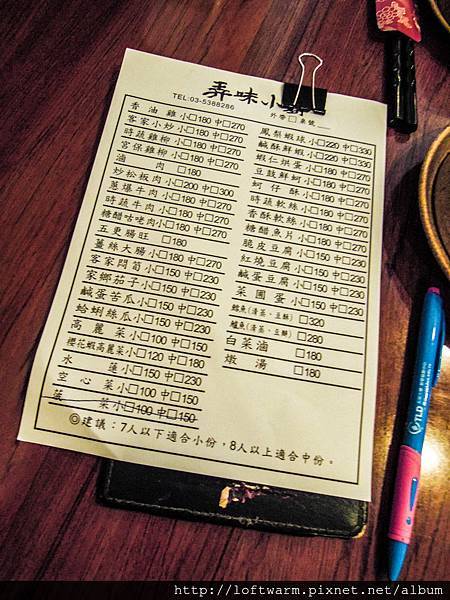 弄味小
TEL:03-5388286
外帶□桌號
香油雞 小□180 中□270
客家小炒 小□180 中□270
時蔬雞柳 小□180 中□270
宮保雞柳 小□180 中□270
滷肉 □180
炒松板肉 小□200 中□300
蔥爆牛肉 小□180 中□270
時蔬牛肉 小□180 中□270
糖醋咕咾肉 小□180 中□270
五更腸旺 □180
薑絲大腸 小□180 中□270
客家悶筍 小□150 中□230
家鄉茄子 小□150 中□230
鹹蛋苦瓜 小□150 中□230
蛤蜊絲瓜 小□150 中□230
高麗菜 小□100 中□150
櫻花蝦高麗菜 小□120 中□180
水蓮 小□150 中□230
空心菜 小□100 中□150
菜 小□100 中□150
鳳梨蝦球 小□220 中□330
鹹酥鮮蝦 小□220 中□330
蝦仁烘蛋 小□180 中□270
豆鼓鮮蚵 小□180 中□270
蚵仔酥 小□180 中□270
時蔬軟絲 小□180 中□270
香酥軟絲 小□180 中□270
糖醋魚片 小□180 中□270
脆皮豆腐 小□150 中□230
紅燒豆腐 小□150 中□230
鹹蛋豆腐 小□150 中□230
菜圃蛋 小□150 中□230
鱈魚(清蒸、豆酥) □320
鱸魚(清蒸、豆酥) □280
白菜滷 □180
燉湯 □180
◎建議:7人以下適合小份,8人以上適合中份。
TLD
http://loftwarm.pixnet.net/album